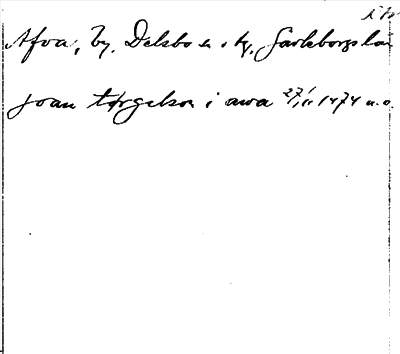 Afva, by, Delsbo sn o tg, Gävleborgs län
joan törgelson i awa 27/11 1474 n.o.